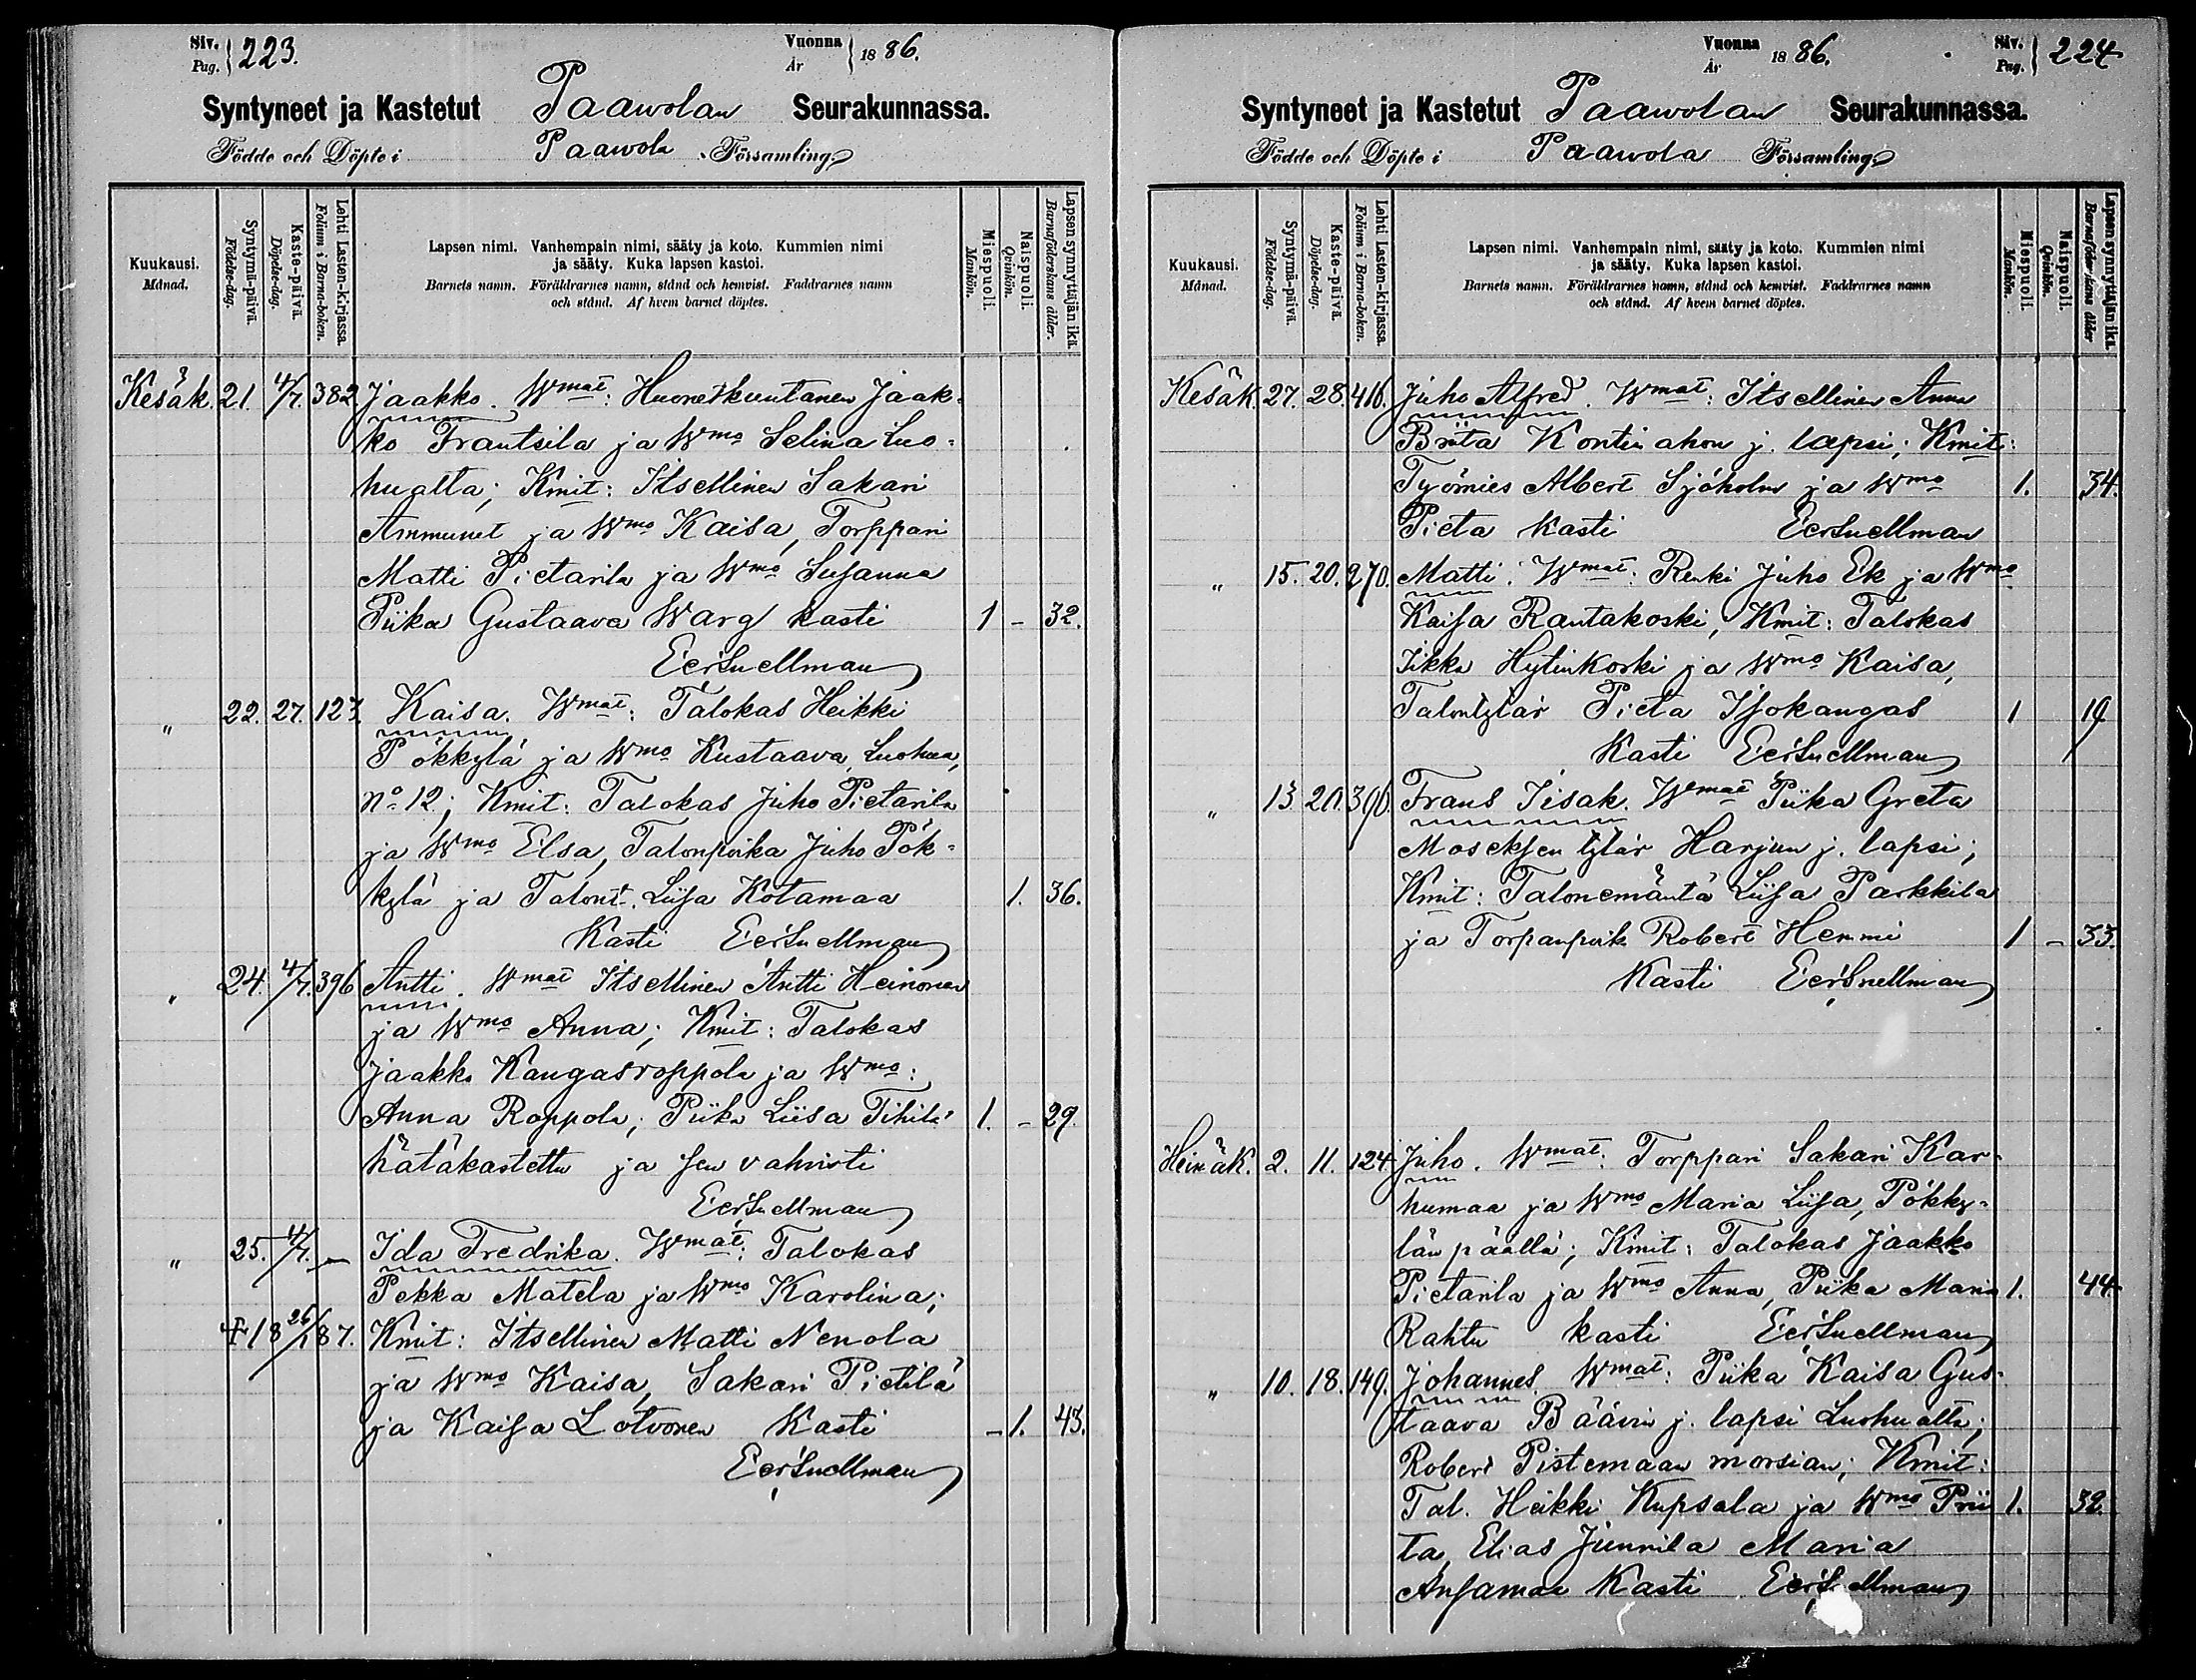 Siv. Pag. 223.
Vuonna År 1886.
Syntyneet ja Kastetut Paawolan Seurakunnassa.
Födde och Döpte i Paawola Församling
Kuukausi. Månad.
Syntymä-päivä. Födelse-dag.
Kaste-päivä. Döpelse-dag.
Lehti Lasten-kirjassa. Folium i Barna-boken.
Lapsen nimi. Vanhempain nimi, sääty ja koto. Kummien nimi
ja sääty. Kuka lapsen kastoi.
Barnets namn. Föräldrarnes namn, stånd och hemvist. Faddrarnes namn
och stånd. Af hvem barnet döptes.
Miespuoli. Mankön.
Naispuoli. Qvinkön.
Lapsen synnyttäjän ikä. Barnaföderskans ålder.
Kesäk. 21. 4/7. 382 Jaakko. Wmat: Huonetkuntanen Jaak-
ko Frantsila ja Wmo Selina Luo-
hualta; Kmit: Itsellinen Sakari
Ammunet ja Wmo Kaisa, Torppari
Matti Pietarila ja Wmo Susanna
Piika Gustaava Warg kasti 1 - 32.
EerSnellman
" 22. 27. 123. Kaisa. Wmat: Talokas Heikki
Pökkylä ja Wmo Kustaava, Luohua,
No 12; Kmit: Talokas Juho Pietarila
ja Wmo Elsa, Talonpoika Juho Pök-
kylä ja Talont. Liisa Kotamaa 1. 36.
Kasti EerSnellman
" 24. 4/7. 396 Antti. Wmat Itsellinen Antti Heinonen
ja Wmo Anna; Kmit: Talokas
Jaakko Kangasroppola ja Wmo:
Anna Roppola; Piika Liisa Tihilä 1. - 29.
hätäkastettu ja sen vahvisti
EerSnellman
" 25. 4/7. — Ida Fredrika. Wmat: Talokas
Pekka Matela ja Wmo Karolina;
† 18 26/1 87. Kmit: Itsellinen Matti Nenola
ja Wmo Kaisa, Sakari Pietilä
ja Kaisa Lotvonen Kasti - 1. 43.
EerSnellman
Vuonna År 1886.
Siv. Pag. 224
Syntyneet ja Kastetut Paawolan Seurakunnassa.
Födde och Döpte i Paawola Församling
Kuukausi. Månad.
Syntymä-päivä. Födelse-dag.
Kaste-päivä. Döpelse-dag.
Lehti Lasten-kirjassa. Folium i Barna-boken.
Lapsen nimi. Vanhempain nimi, sääty ja koto. Kummien nimi
ja sääty. Kuka lapsen kastoi.
Barnets namn. Föräldrarnes namn, stånd och hemvist. Faddrarnes namn
och stånd. Af hvem barnet döptes.
Miespuoli. Mankön.
Naispuoli. Qvinkön.
Lapsen synnyttäjän ikä. Barnaföderskans ålder
Kesäk. 27. 28. 416. Juho Alfred. Wmat: Itsellinen Anna
Briita Kontinahon j. lapsi; Kmit:
Työmies Albert Sjöholm ja Wmo 1. 34.
Pieta Kasti EerSnellman
" 15. 20. 270. Matti. Wmat: Renki Juho Ek ja Wmo
Kaisa Rantakoski, Kmit: Talokas
Iikka Hytinkoski ja Wmo Kaisa,
Talontytär Pieta Isokangas 1 19
Kasti EerSnellman
" 13. 20. 396. Frans Iisak. Wmat Piika Greta
Moseksen tytär Harjun j. lapsi;
Kmit: Talonemäntä Liisa Parkkila
ja Torpanpoik Robert Hemmi 1 - 33.
Kasti EerSnellman
Heinäk. 2. 11. 124 Juho. Wmat: Torppari Sakari Kar-
humaa ja Wmo Maria Liisa, Pökky-
län päällä; Kmit: Talokas Jaakko
Pietarila ja Wmo Anna, Piika Maria 1. 44
Rahtu kasti EerSnellman
" 10. 18. 149. Johannes Wmat: Piika Kaisa Gus-
taava Bäävin j. lapsi Luohualta;
Robert Pistemaan morsian; Kmit:
Tal. Heikki Kupsala ja Wmo Prii 1. 32.
ta, Elias Junnila Maria
Ansamaa Kasti EerSnellman